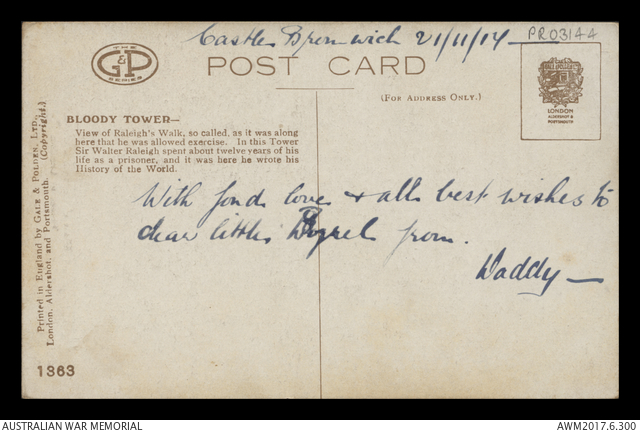 Castle Bromwich 21/11/14
PR03144
THE
G&P
SERIES
POST CARD
(FOR ADDRESS ONLY.)
LONDON
ALDERSHOT &
PORTSMOUTH
BLOODY TOWER—
View of Raleigh's Walk, so called, as it was along
here that he was allowed exercise. In this Tower
Sir Walter Raleigh spent about twelve years of his
life as a prisoner, and it was here he wrote his
History of the World.
Printed in England by GALE & POLDEN, LTD.,
London, Aldershot, and Portsmouth. (Copyright.)
With fond love & all best wishes to
dear little from.
Daddy —
1363
AUSTRALIAN WAR MEMORIAL
AWM2017.6.300